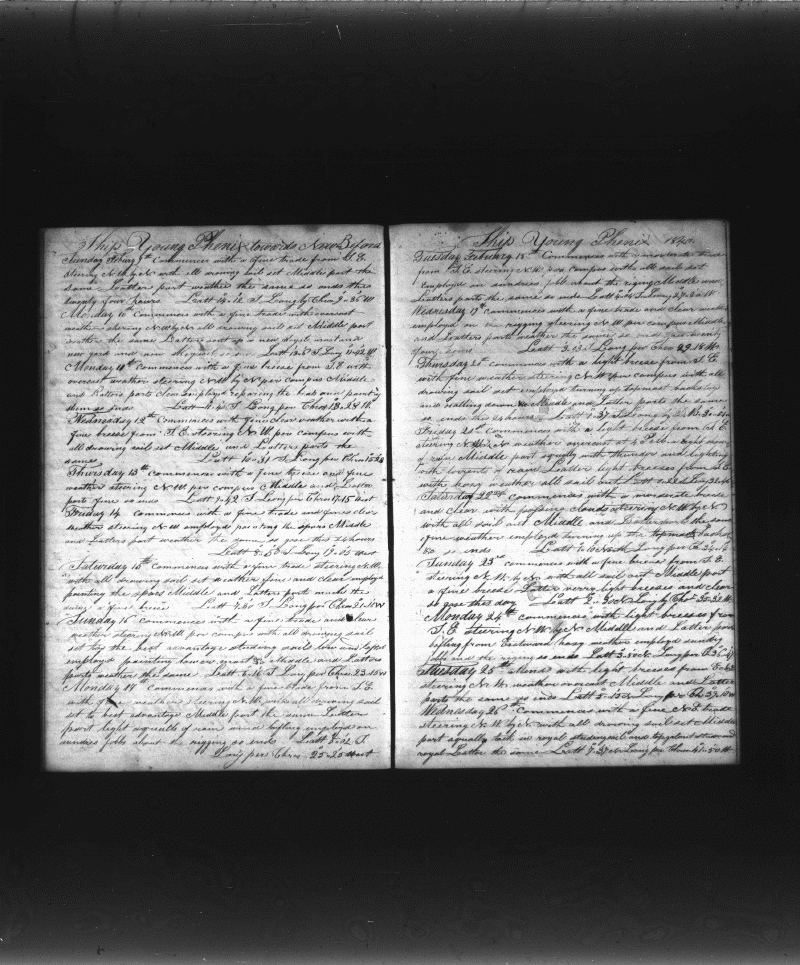 Ship Young Phenix towards New Beford
Sunday Febuy 9th commences with a fine trade from S.E.
steering N.W by N with all drawing sail set Middle part the
same Latter part weather the same so ends these
twenty four hours Latt 14-12 S Long by Chro 9-36 W
Monday 10 commences with a fine trade with overcast
weather steering N.W by N all drawing sail set Middle part
weather the same Latter sent up a new
new yard and new so ends Latt 13-8 S Long 11-22 W
Monday 10th commences with a fine breeze from S.E with
overcast weather steering N.W by N per compas Middle
and Latter parts clear employd repairing the boat and painting
them so ends Latt S Long per Chro 13-28 W
Wednesday 12th commences with fine clear weather with a
fine breeze from S.E steering N.W per compas with
all drawing sail set Middle and Latters parts the
same Latt 10-31 S Long per Chro 15-28
Thursday 13th commences with a fine breeze and fine
weather steering N.W per compas Middle and Latter
parts fine so ends Latt 9-42 S Long per Chro 17-15 West
Friday 14 commences with a fine trades and fine clear
weather steering N.W employd painting the spars Middle
and Latters part weather the same so goes this 24 hours
Latt 8-50 S Long 19-05 West
Saturday 15th commences with a fine trade steering N.W
with all drawing sail set weather fine and clear employd
painting the spars Middle and Latters parts much the
a fine breeze Latt 7-30 S Long per Chro 21-18 W
Sunday 16 commences with a fine trade and clear
weather steering N.W per compas with all drawing sail
set too the best advantage studing sails low and lofted
employd painting lower mast &c Middle and Latters
parts weather the same Latt 6-16 S Long per Chro 23-15 W
Monday 17 commences with a fine trade from S.E.
with weather steering N.W with all drawing sail
set to best advantage Middle part the same Latter
part light squalls of rain wind bafling employd on
sundres jobs about the rigging so ends Latt 5-02 S
Long per Chro 25-25 West
Ship Young Phenix 1840
Tuesday Febuary 18th Commences with a moderate trade
from S.E steering N.W per compas with all sail set
employd on sundres jobs about the riging Middle and
Latters parts the same so ends Latt S Long 27-20 W
Wednesday 19th commences with a fine trade and clear weather
employd on the rigging steering N.W per compas Middle
and Latters parts weather the same so ends twenty
four hours Latt S Long per Chro 29-18 W
Thursday 20th commences with a light breese from S.E
with fine weather steering N.W per compas with all
drawing sail set employd turning up topmast backstays
and ratling down Middle and Latter parts the same
so ends this 24 hours Latt 1-37 S Long by Chro 30-30 W
Friday 21st commences with a light breese from S.E
steering N.W by N weather overcast at 4 P.M light
of rain Middle part squally with thunder and lightning
with torrents of rain Latter light breeses from S.E
with hasy weather all sail out Latt S Long
Saturday 22nd commences with a moderate breese
and clear with passing clouds steering N.W by N
with all sail out Middle and Latter part the same
fine weather employd turning up the topmast backst
&c so ends Latt North Long per Ch
Sunday 23rd commences with a fine breese from S.E.
steering N.W. by N. with all sail out Middle part
a fine breese Latter verry light breeses and clear
so goes this day Latt 2-30 N Long by Chro 35-32 W
Monday 24th commences with light breeses from
S.E. steering N.W by N Middle and Latter part
bafling from Eastward hasy weather employd sundry
jobs and the rigging so ends Latt 3-50 N Long per Ch
Tuesday 25th Attend with light breeses from
steering N.W. weather overcast Middle and Latter
parts the same so ends Latt N Long per Ch 37-10 W
Wednesday 26th Commences with a fine N.E trade
steering N.W. by N. with all drawing sail set Middle
part squally took in royal studingsail and topgalant
royal Latter the same Latt 7-37 N Long per Chron 41-30 W